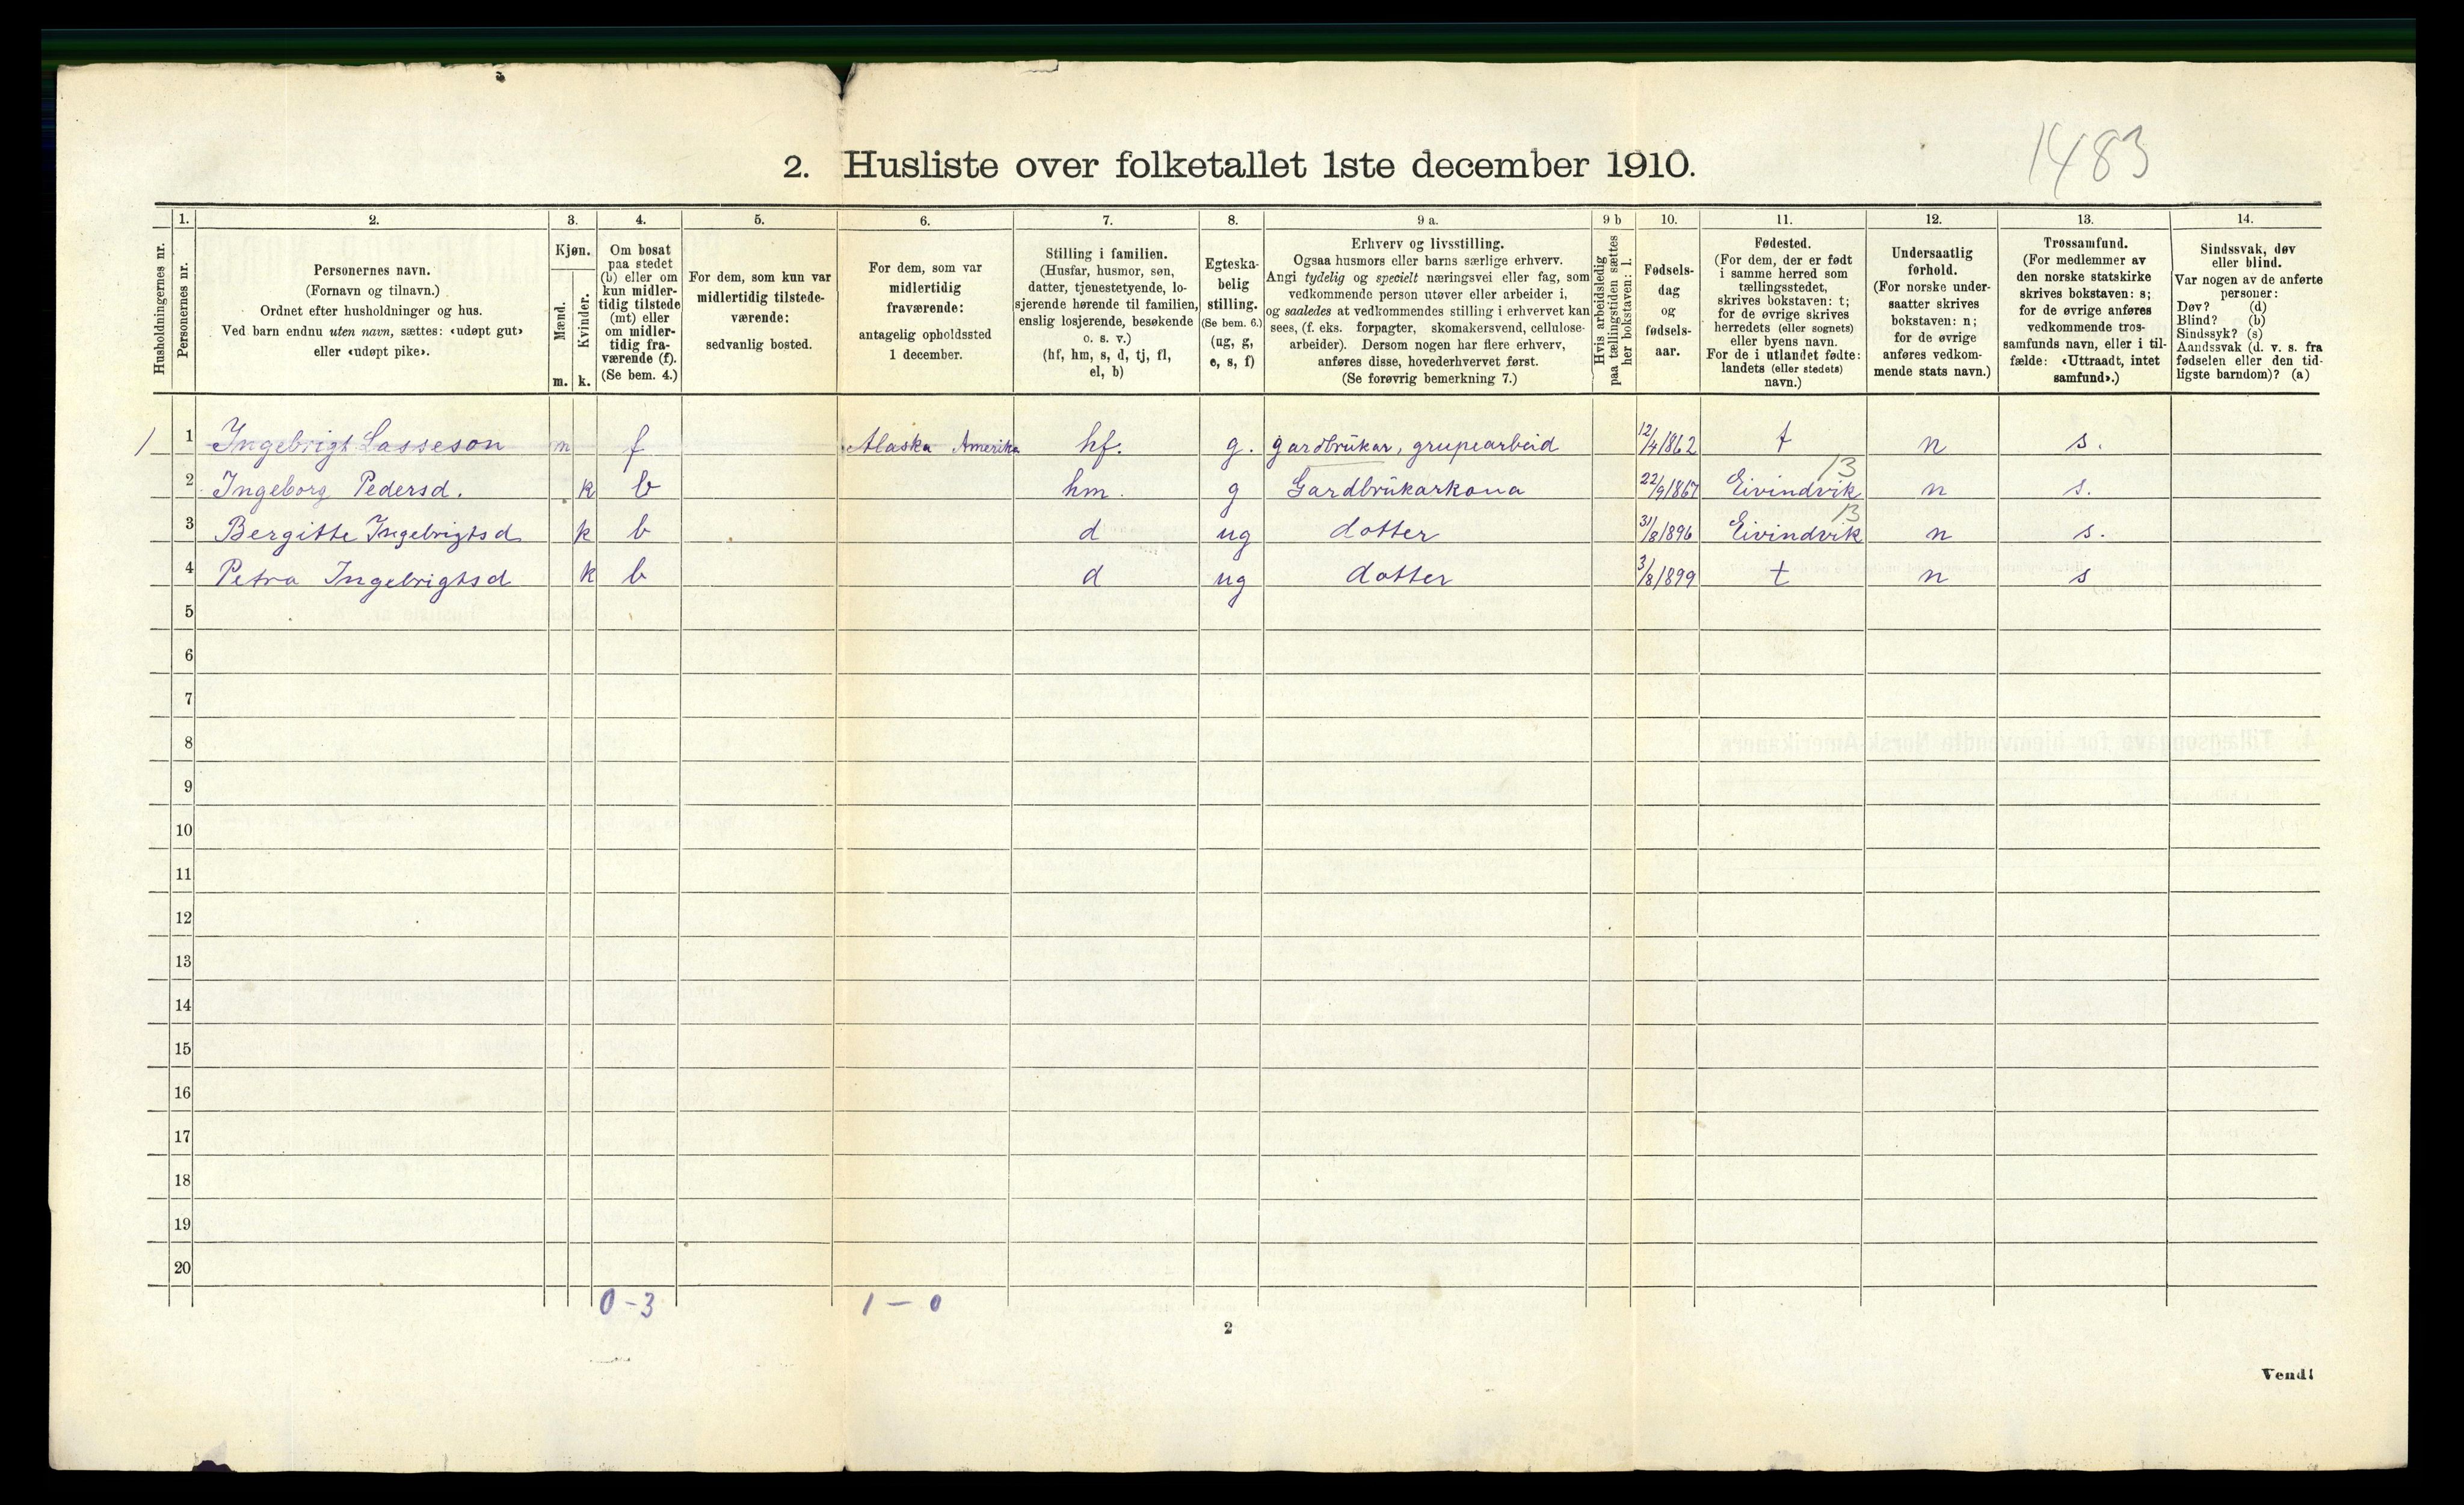 1483
2. Husliste over folketallet 1ste december 1910.
Husholdningernes nr.
1. Personernes nr.
2. Personernes navn.
(Fornavn og tilnavn.)
Ordnet efter husholdninger og hus.
Ved barn endnu uten navn, sættes: «udøpt gut»
eller «udøpt pike».
3. Kjøn.
Mænd. m.
Kvinder. k.
4. Om bosat
paa stedet
(b) eller om
kun midler-
tidig tilstede
(mt) eller
om midler-
tidig fra-
værende (f).
(Se bem. 4.)
5. For dem, som kun var
midlertidig tilstede-
værende:
sedvanlig bosted.
6. For dem, som var
midlertidig
fraværende:
antagelig opholdssted
1 december.
7. Stilling i familien.
(Husfar, husmor, søn,
datter, tjenestetyende, lo-
sjerende hørende til familien,
enslig losjerende, besøkende
o. s. v.)
(hf, hm, s, d, tj, fl,
el, b)
8. Egteska-
belig
stilling.
(Se bem. 6.)
(ug, g,
e, s, f)
9 a. Erhverv og livsstilling.
Ogsaa husmors eller barns særlige erhverv.
Angi tydelig og specielt næringsvei eller fag, som
vedkommende person utøver eller arbeider i,
og saaledes at vedkommendes stilling i erhvervet kan
sees, (f. eks. forpagter, skomakersvend, cellulose-
arbeider). Dersom nogen har flere erhverv,
anføres disse, hovederhvervet først.
(Se forøvrig bemerkning 7.)
9 b Hvis arbeidsledig
paa tællingstiden sættes
her bokstaven: l.
10. Fødsels-
dag
og
fødsels-
aar.
11. Fødested.
(For dem, der er født
i samme herred som
tællingsstedet,
skrives bokstaven: t;
for de øvrige skrives
herredets (eller sognets)
eller byens navn.
For de i utlandet fødte:
landets (eller stedets)
navn.)
12. Undersaatlig
forhold.
(For norske under-
saatter skrives
bokstaven: n;
for de øvrige
anføres vedkom-
mende stats navn.)
13. Trossamfund.
(For medlemmer av
den norske statskirke
skrives bokstaven: s;
for de øvrige anføres
vedkommende tros-
samfunds navn, eller i til-
fælde: «Uttraadt, intet
samfund».)
14. Sindssvak, døv
eller blind.
Var nogen av de anførte
personer:
Døv? (d)
Blind? (b)
Sindssyk? (s)
Aandssvak (d. v. s. fra
fødselen eller den tid-
ligste barndom)? (a)
1 1 Ingebrigt Lasseson m f Alaska Amerika hf. g. gardbrŭkar, grupearbeid 12/4 1862 t n s.
2 Ingeborg Pedersd. k b hm. g Gardbrŭkarkona 22/9 1867 Eivindvik 13 n s.
3 Bergitte Ingebrigtsd k b d ug dotter 31/8 1896 Eivindvik 13 n s.
4 Petra Ingebrigtsd k b d ug dotter 3/8 1899 t n s
5
6
7
8
9
10
11
12
13
14
15
16
17
18
19
20
0-3 1-0
2
Vend!